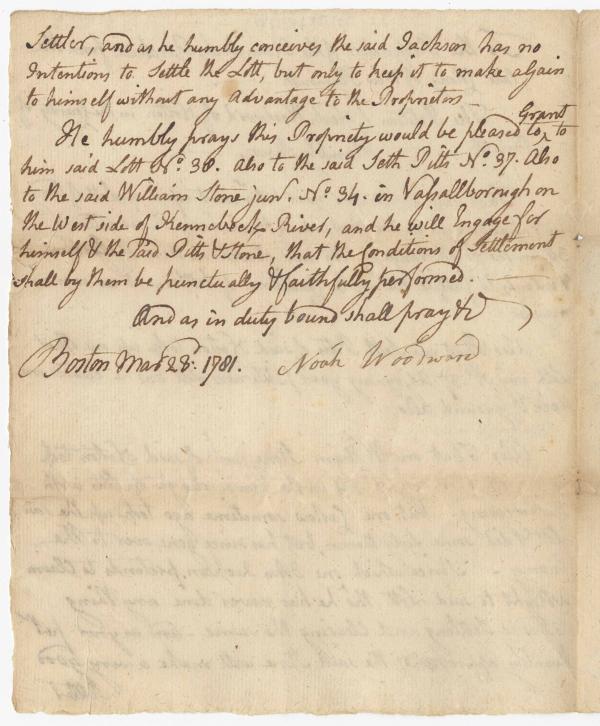 Settler, and as he humbly conceives the said Jackson has no
Intentions to Settle the Lott, but only to keep it to make a Gain
to himself without any Advantage to the Proprietors —
He humbly prays this Propriety would be pleased to Grant to
him said Lott No. 36. Also to the said Seth Pitts No. 37. Also
to the said William Stone junr. No. 34. in Vassallborough on
the West side of Kennebeck River, and he will Engage for
himself & the said Pitts & Stone, that the Conditions of Settlement
shall by them be punctually & faithfully performed. —
And as in duty bound shall pray &c
Boston Mar 28. 1781. Noah Woodward